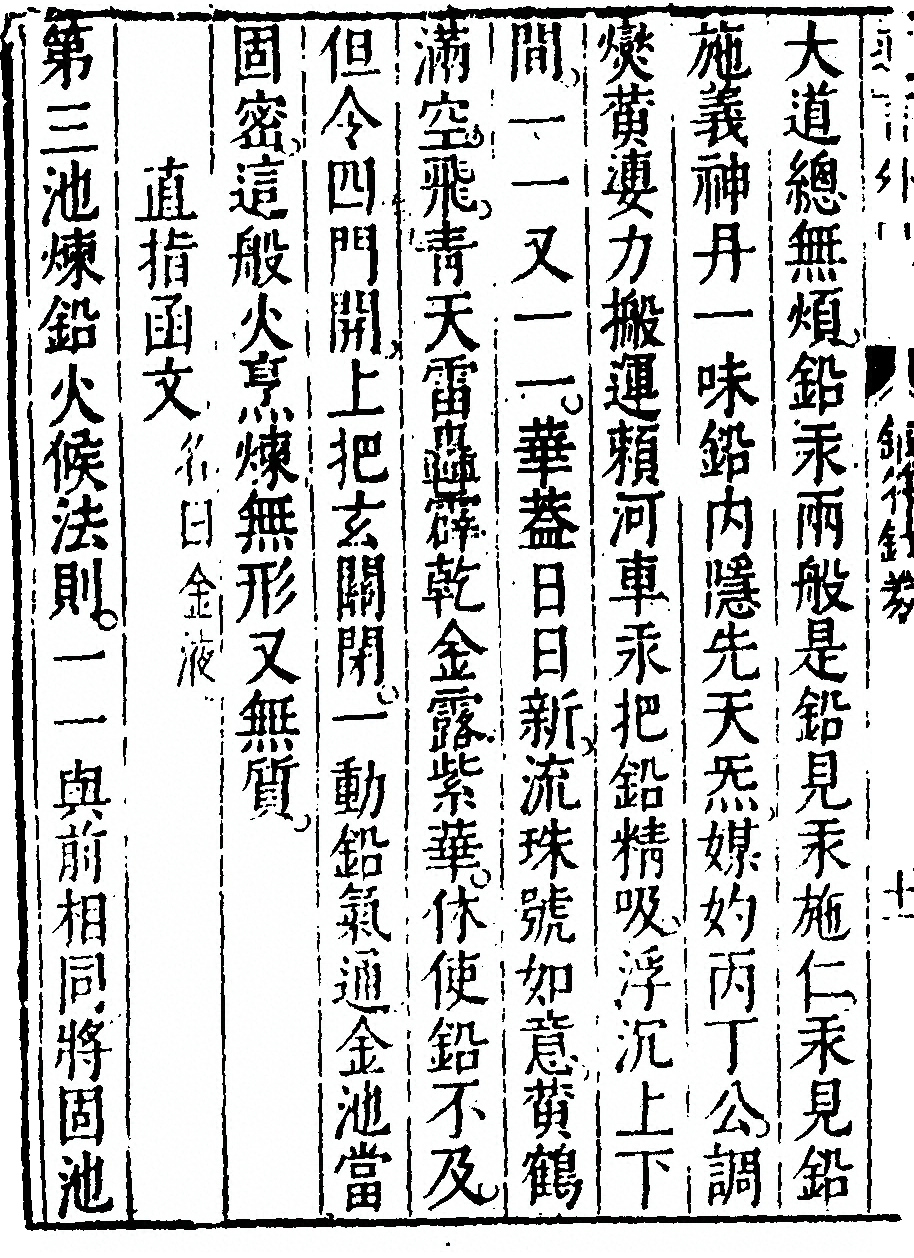 大道總無煩鉛汞兩般是鉛見汞施仁汞見鉛
施義神丹一味鉛內隱先天炁媒妁丙丁公調
燮黃婆力搬運賴河車汞把鉛精吸浮沉上下
間一一又一一。華葢日日新流珠號如意黃鶴
滿空飛青天雷轟霹乾金露紫華。休使鉛不及
但令四門開上把玄關閉。一動鉛氣通金池當
固密這般火烹煉無形又無質
直指函文 名曰金液
第三池煉鉛火候法則。一一與前相同將固池